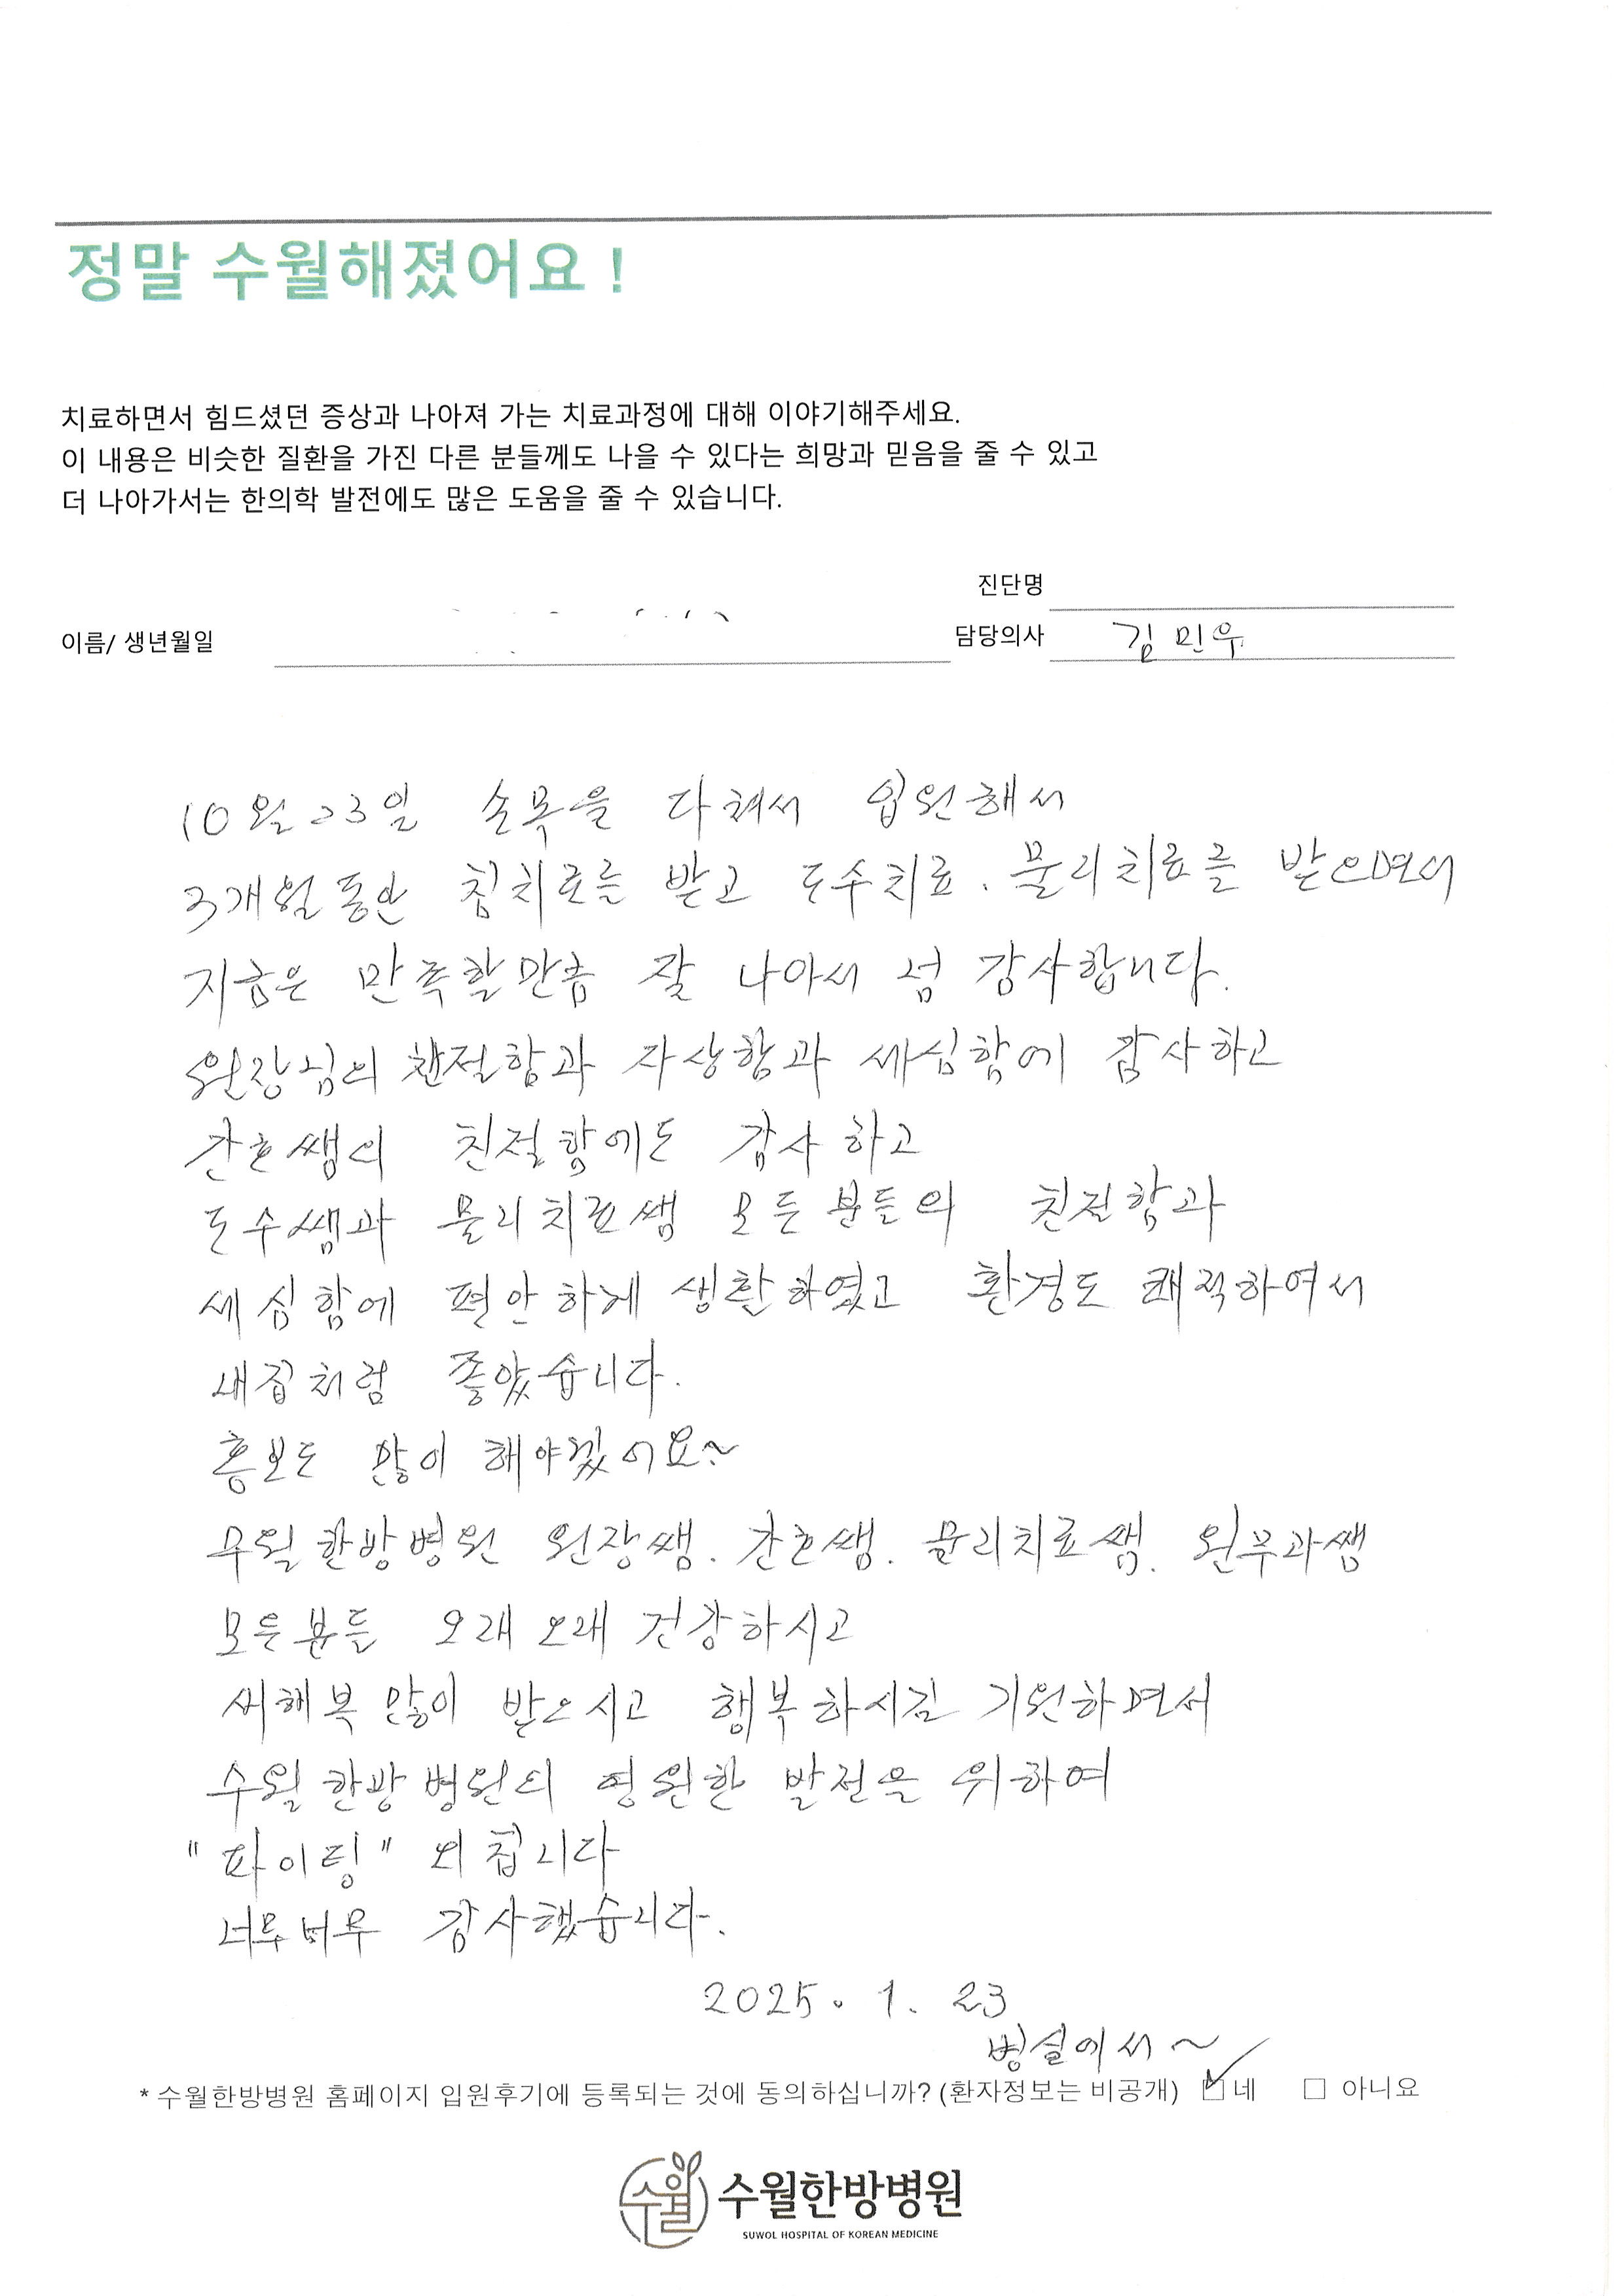 정말 수월해졌어요 !
치료하면서 힘드셨던 증상과 나아져 가는 치료과정에 대해 이야기해주세요.
이 내용은 비슷한 질환을 가진 다른 분들께도 나을 수 있다는 희망과 믿음을 줄 수 있고
더 나아가서는 한의학 발전에도 많은 도움을 줄 수 있습니다.
진단명
이름/ 생년월일 담당의사 김민우
10월 23일 손목을 다쳐서 입원해서
3개월동안 침치료를 받고 도수치료. 물리치료를 받으면서
지금은 만족할만큼 잘 나아서 넘 감사합니다.
원장님의 친절함과 자상함과 세심함에 감사하고
간호쌤의 친절함에도 감사하고
도수쌤과 물리치료쌤 모든분들의 친절함과
세심함에 편안하게 생활하였고 환경도 쾌적하여서
내집처럼 좋았습니다.
홍보도 많이 해야겠어요~
수월한방병원 원장쌤. 간호쌤. 물리치료쌤. 원무과쌤
모든분들 오래오래 건강하시고
새해복 많이 받으시고 행복하시길 기원하면서
수월한방병원의 영원한 발전을 위하여
"파이팅" 외칩니다
너무너무 감사했습니다.
2025. 1. 23
병실에서~
* 수월한방병원 홈페이지 입원후기에 등록되는 것에 동의하십니까? (환자정보는 비공개) ☑ 네 ☐ 아니요
수월 수월한방병원
SUWOL HOSPITAL OF KOREAN MEDICINE